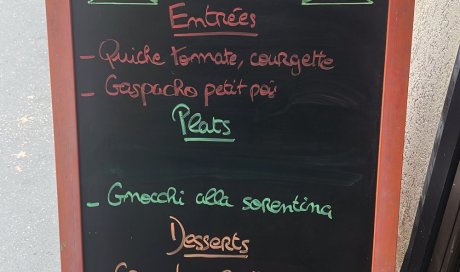 Entrées
- Quiche tomate, courgette
- Gaspacho petit pois
Plats
- Gnocchi alla sorentina
Desserts